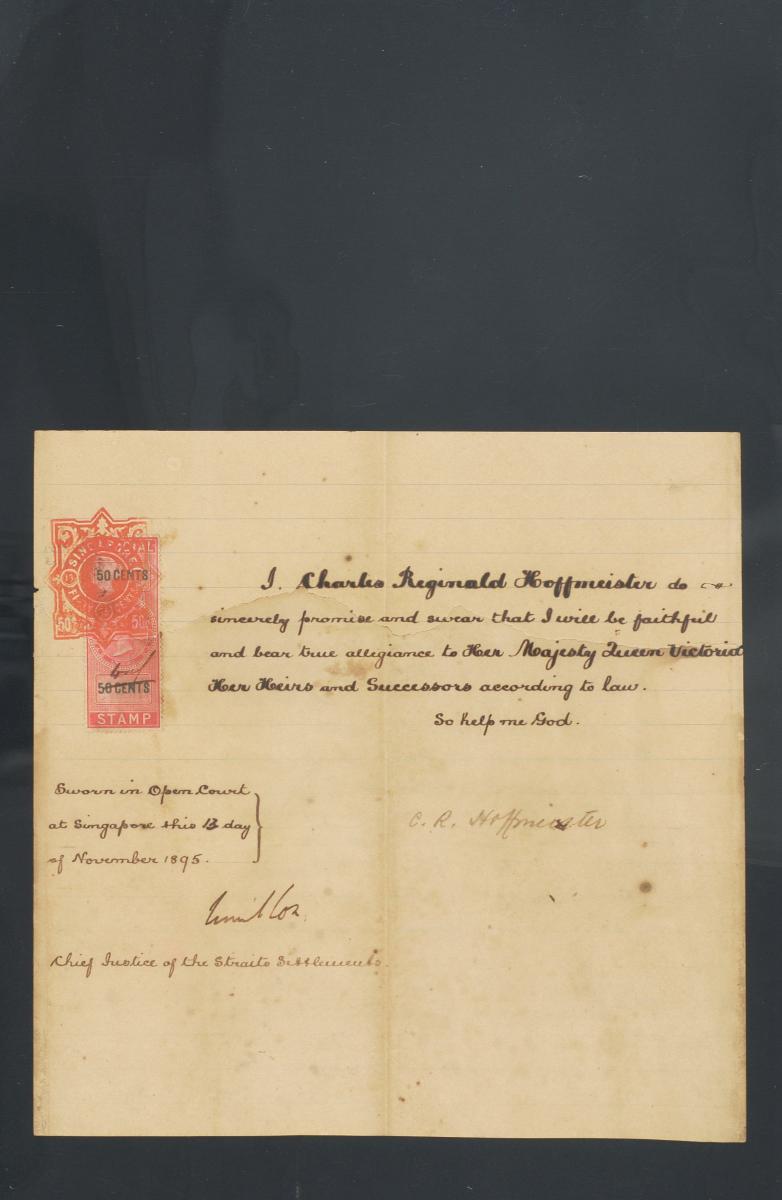 SINGAPORE
50 CENTS
50c
50c
50 CENTS
STAMP
I, Charles Reginald Hoffmeister do
sincerely promise and swear that I will be faithful
and bear true allegiance to Her Majesty Queen Victoria
Her Heirs and Successors according to law.
So help me God.
Sworn in Open Court
at Singapore this 13 day
of November 1895.
C. R. Hoffmeister
Chief Justice of the Straits Settlements.